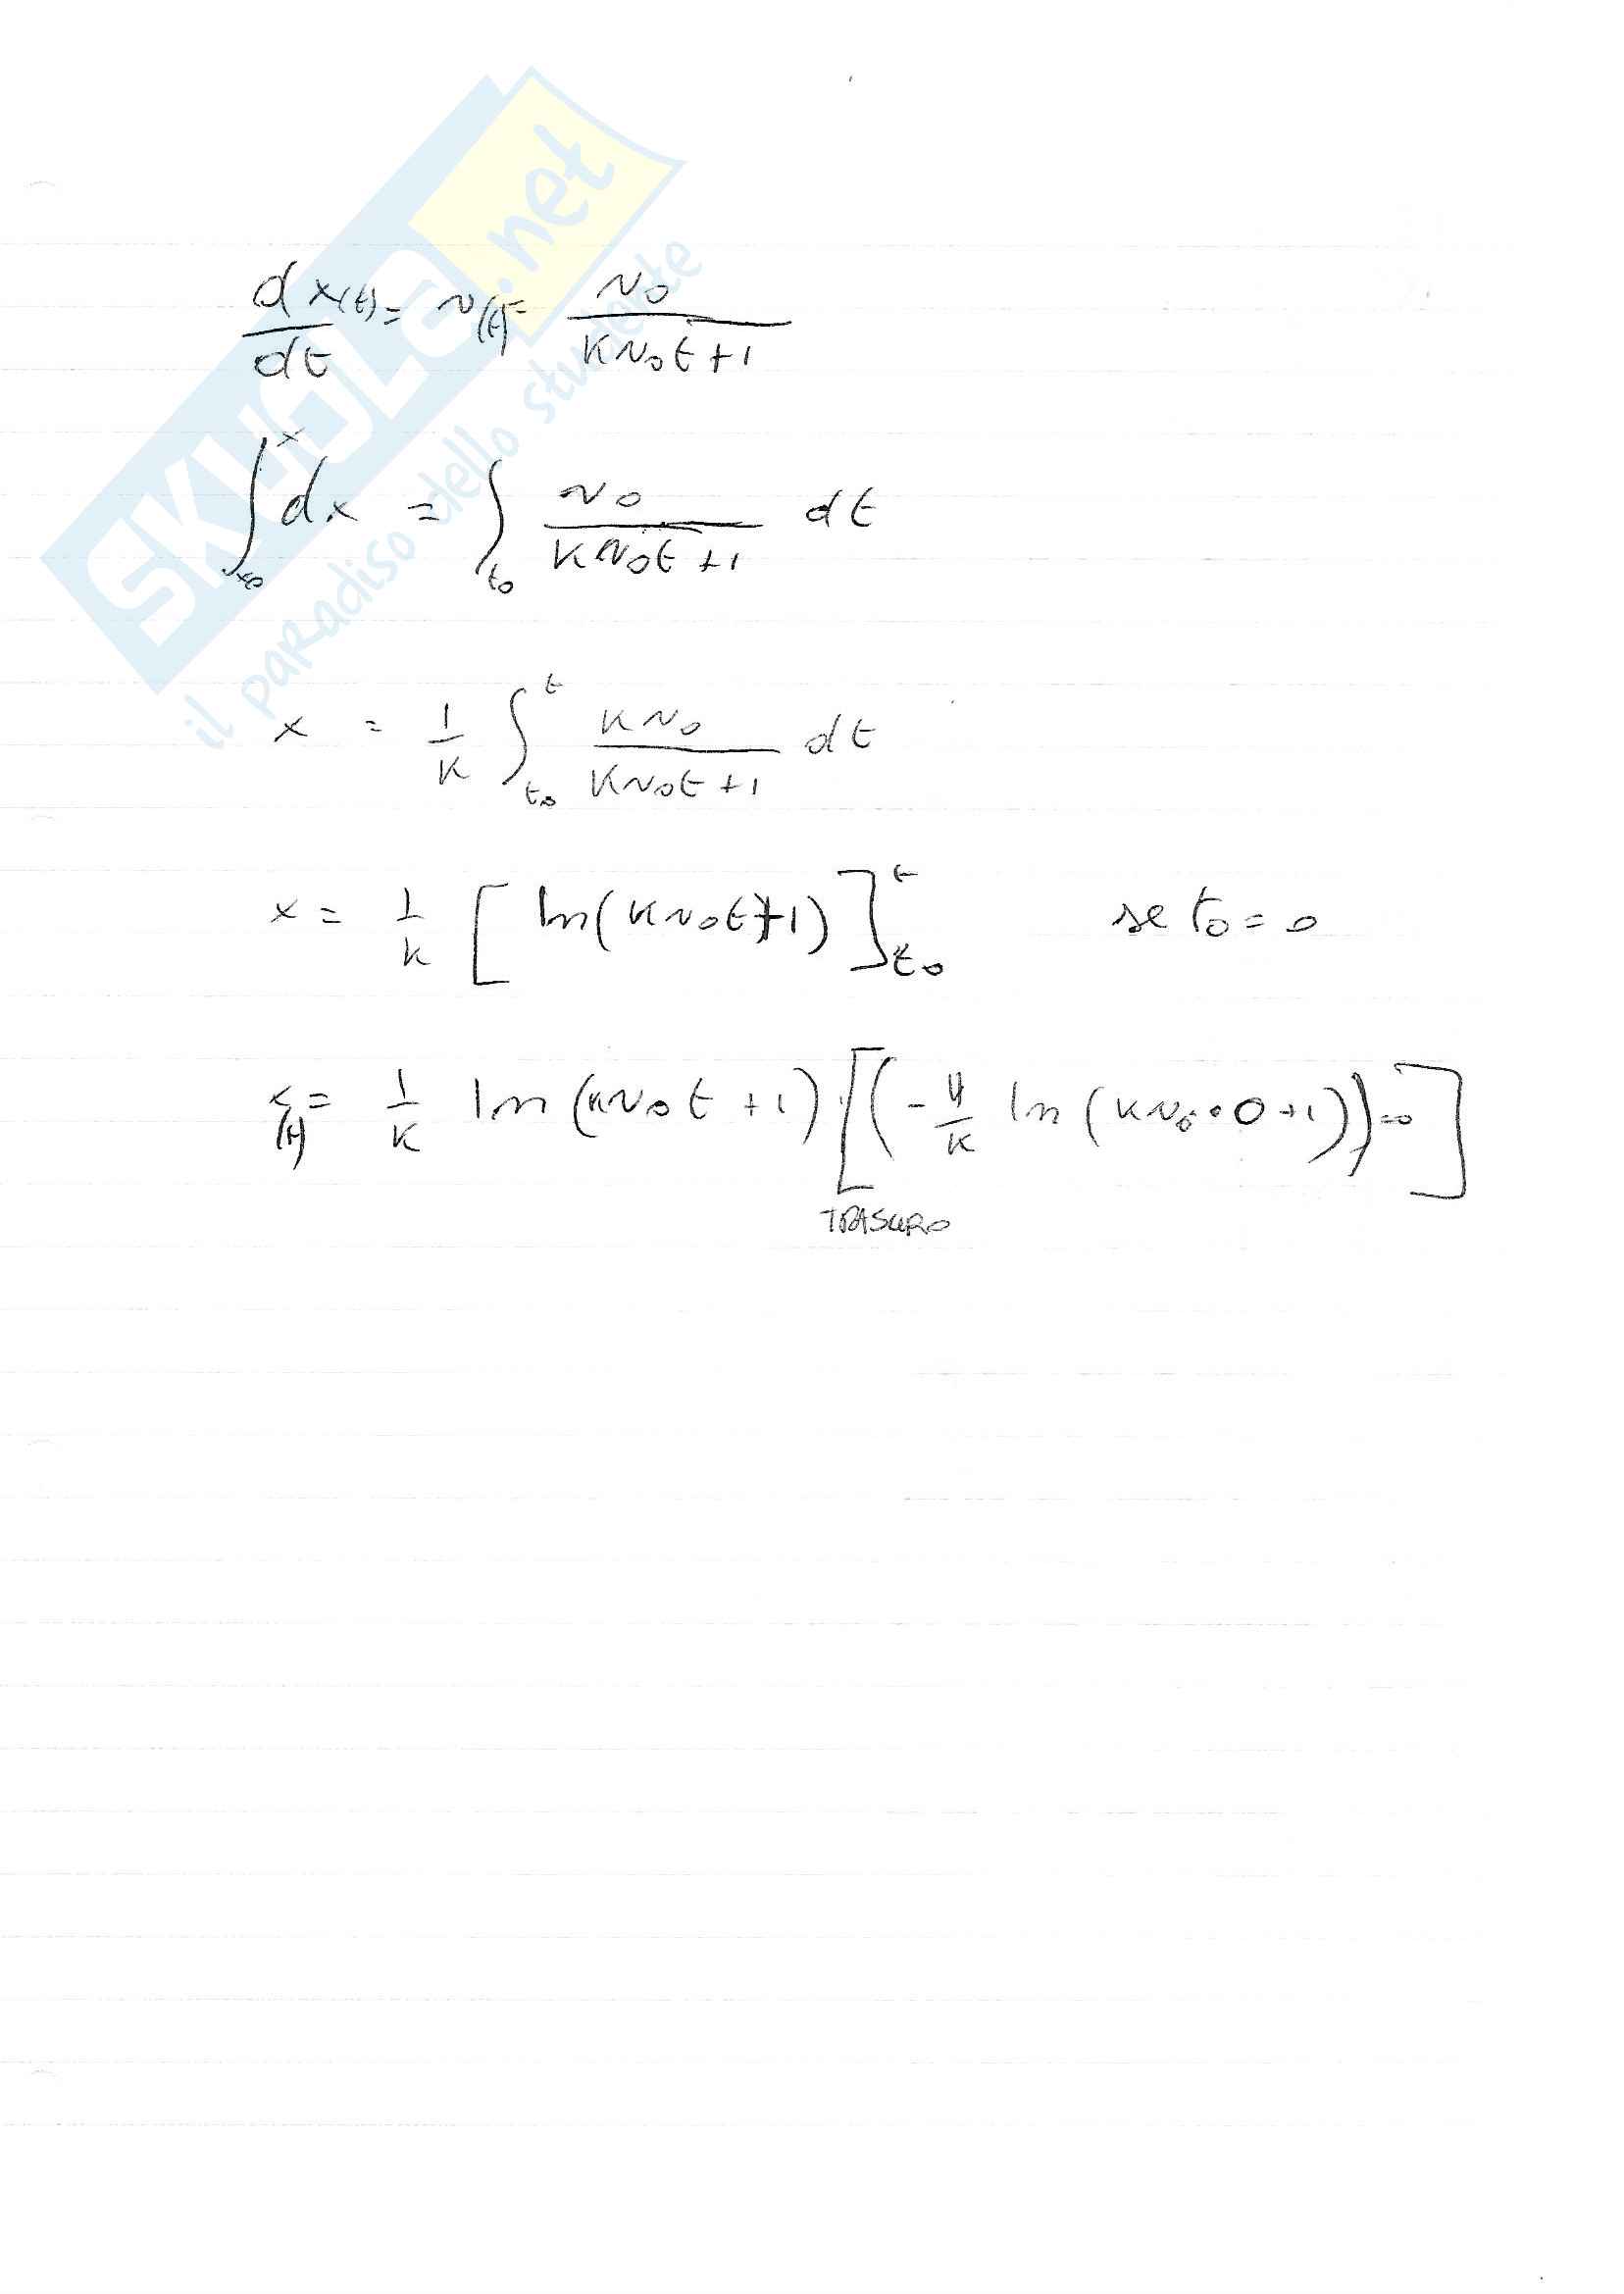 SKUOLA.net
il paradiso dello studente
dx(t)/dt = v(t) = v0/(kv0t+1)
∫_{x0}^{x} dx = ∫_{t0} v0/(kv0t+1) dt
x = 1/k ∫_{t0}^{t} kv0/(kv0t+1) dt
x = 1/k [ln(kv0t+1)]_{t0}^{t} se t0=0
x(t) = 1/k ln(kv0t+1) [(-1/k ln(kv0·0+1))=0]
TRASCURO